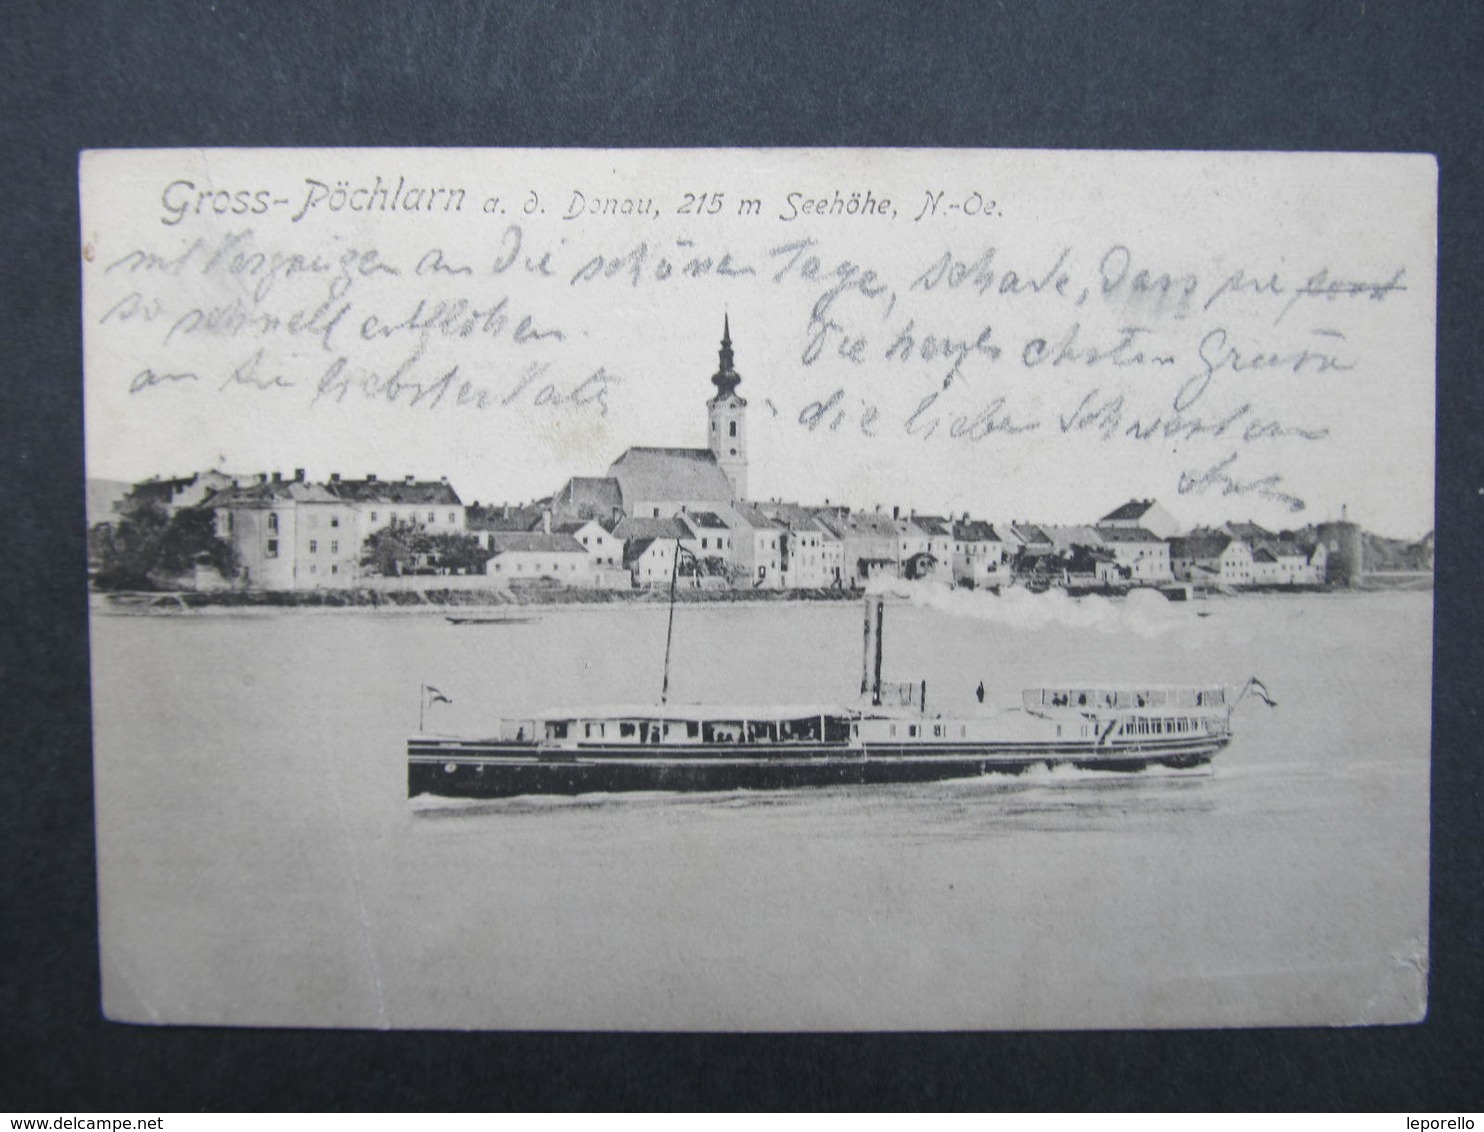 Gross-Pöchlarn a. d. Donau, 215 m Seehöhe, N.-Oe.
mit Vergnügen an die schönen Tage, schade, dass sie
so schnell entflohen.
an die liebsten
die herzlichsten Grüsse
die lieben Schwestern
delcampe.net
leporello